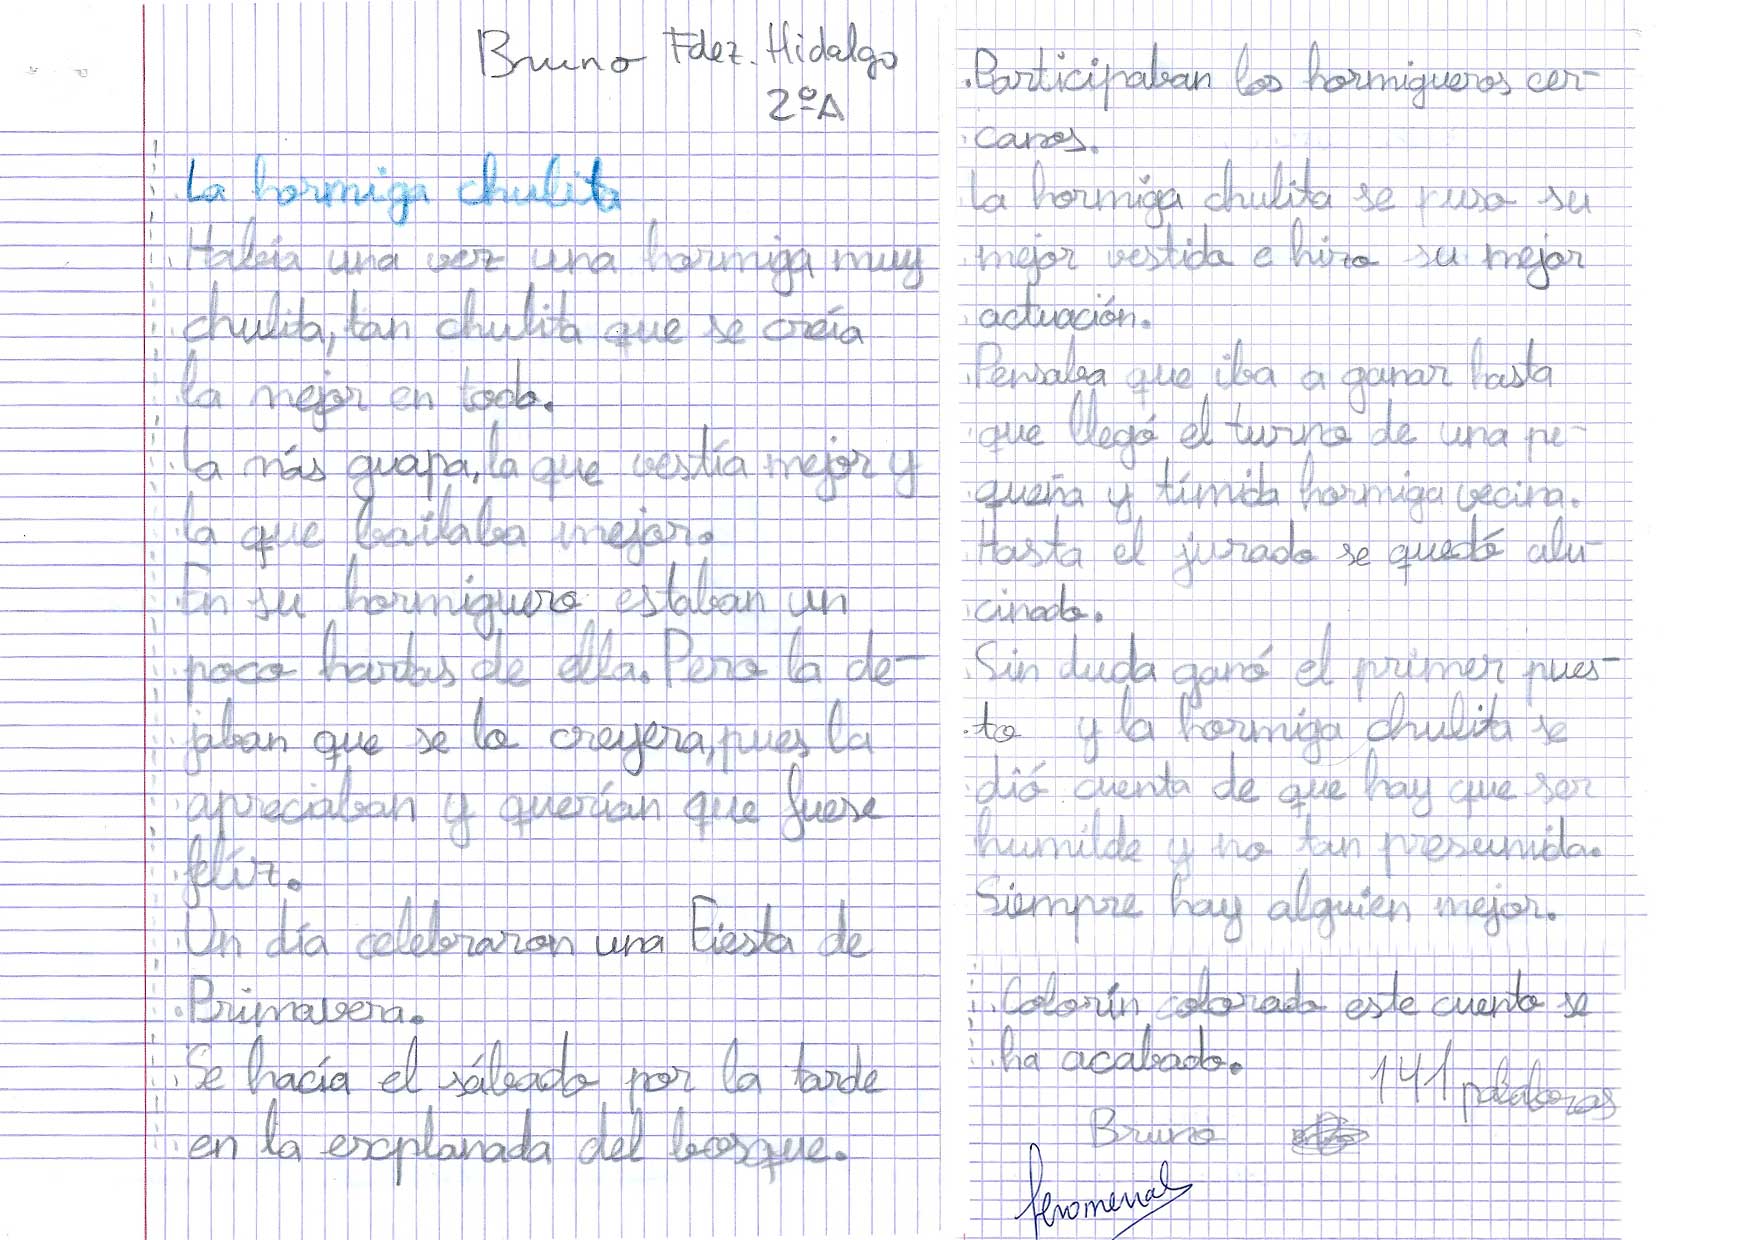 Bruno Fdez. Hidalgo
2ºA
La hormiga chulita
Había una vez una hormiga muy
chulita, tan chulita que se creía
la mejor en todo.
La más guapa, la que vestía mejor y
la que bailaba mejor.
En su hormiguero estaban un
poco hartas de ella. Pero la de-
jaban que se lo creyera, pues la
apreciaban y querían que fuese
felíz.
Un día celebraron una Fiesta de
Primavera.
Se hacía el sábado por la tarde
en la explanada del bosque.
Participaban los hormigueros cer-
canos.
La hormiga chulita se puso su
mejor vestido e hizo su mejor
actuación.
Pensaba que iba a ganar hasta
que llegó el turno de una pe-
queña y tímida hormiga vecina.
Hasta el jurado se quedó alu-
cinado.
Sin duda ganó el primer pues-
to y la hormiga chulita se
dió cuenta de que hay que ser
humilde y no tan presumida.
Siempre hay alguien mejor.
Colorín colorado este cuento se
ha acabado.
141 palabras
Bruno
fenomenal